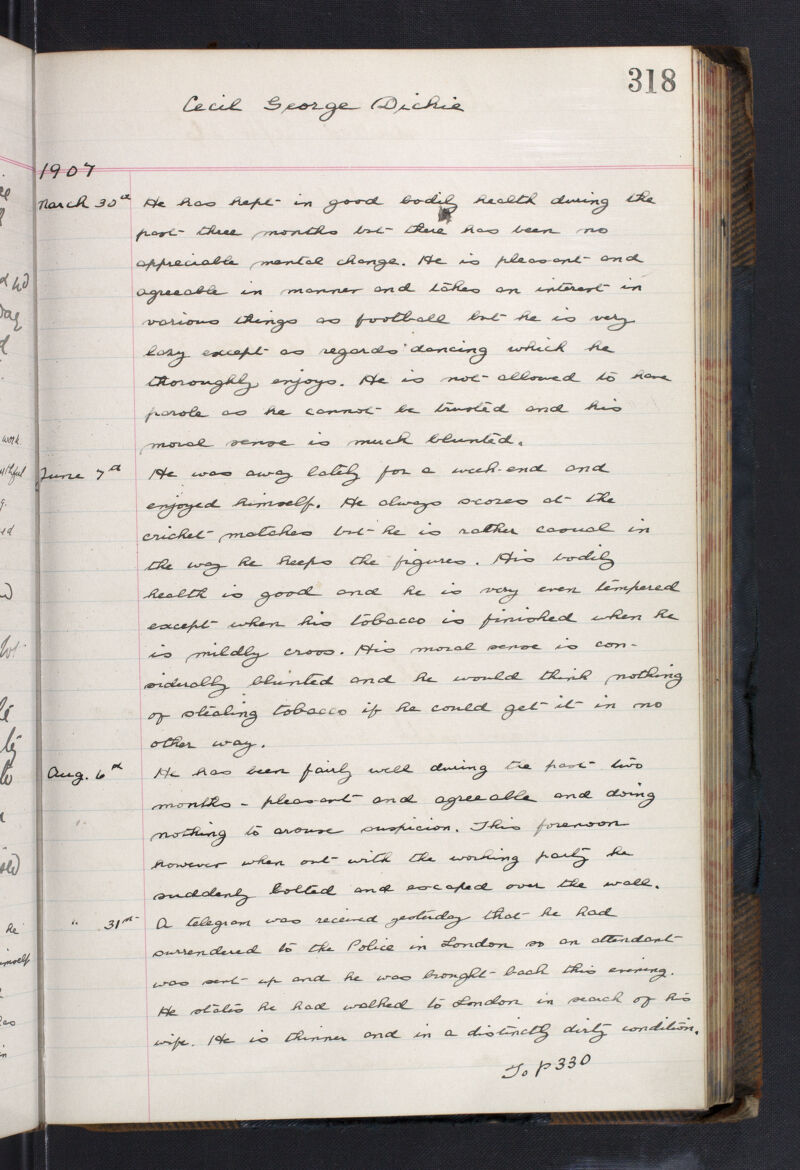 318
Cecil George Dickie
1907
March 30th He has kept in good bodily health during the
past three months but there has been no
appreciable mental change. He is pleasant and
agreeable in manner and takes an interest in
various things as football but he is very
lazy except as regards dancing which he
thoroughly enjoys. He is not allowed to have
parole as he cannot be trusted and his
moral sense is much blunted.
June 7th He was away lately for a week-end and
enjoyed himself. He always scores at the
cricket matches but he is rather casual in
the way he keeps the figures. His bodily
health is good and he is very even tempered
except when his tobacco is finished when he
is mildly cross. His moral sense is con-
siderably blunted and he would think nothing
of stealing tobacco if he could get it in no
other way.
Aug. 6th He has been fairly well during the past two
months - pleasant and agreeable and doing
nothing to arouse suspicion. This forenoon
however when out with the working party he
suddenly bolted and escaped over the wall.
" 31st A telegram was received yesterday that he had
surrendered to the Police in London so an attendant
was sent up and he was brought back this evening.
He states he had walked to London in search of his
wife. He is thinner and in a distinctly dirty condition.
To p 330